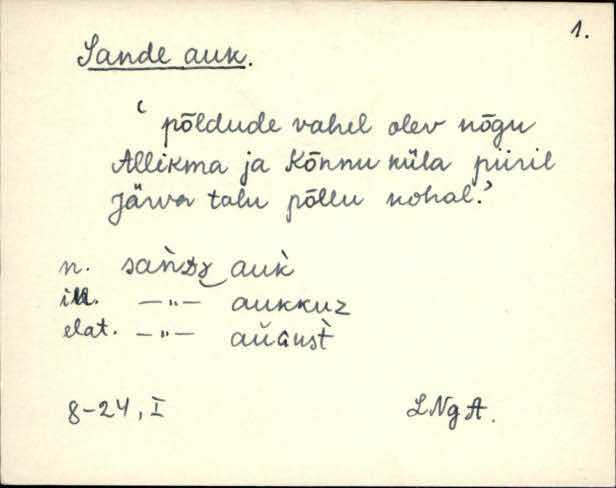 1.
Sande auk.
‘ põldude vahel olev nõgu
Allikma ja Kõnnu küla piiril
Järva talu põllu kohal.’
n. auk̀
ill. —"— aukkuz
elat. —"— aŭgust̀
8-24, I LNgA.